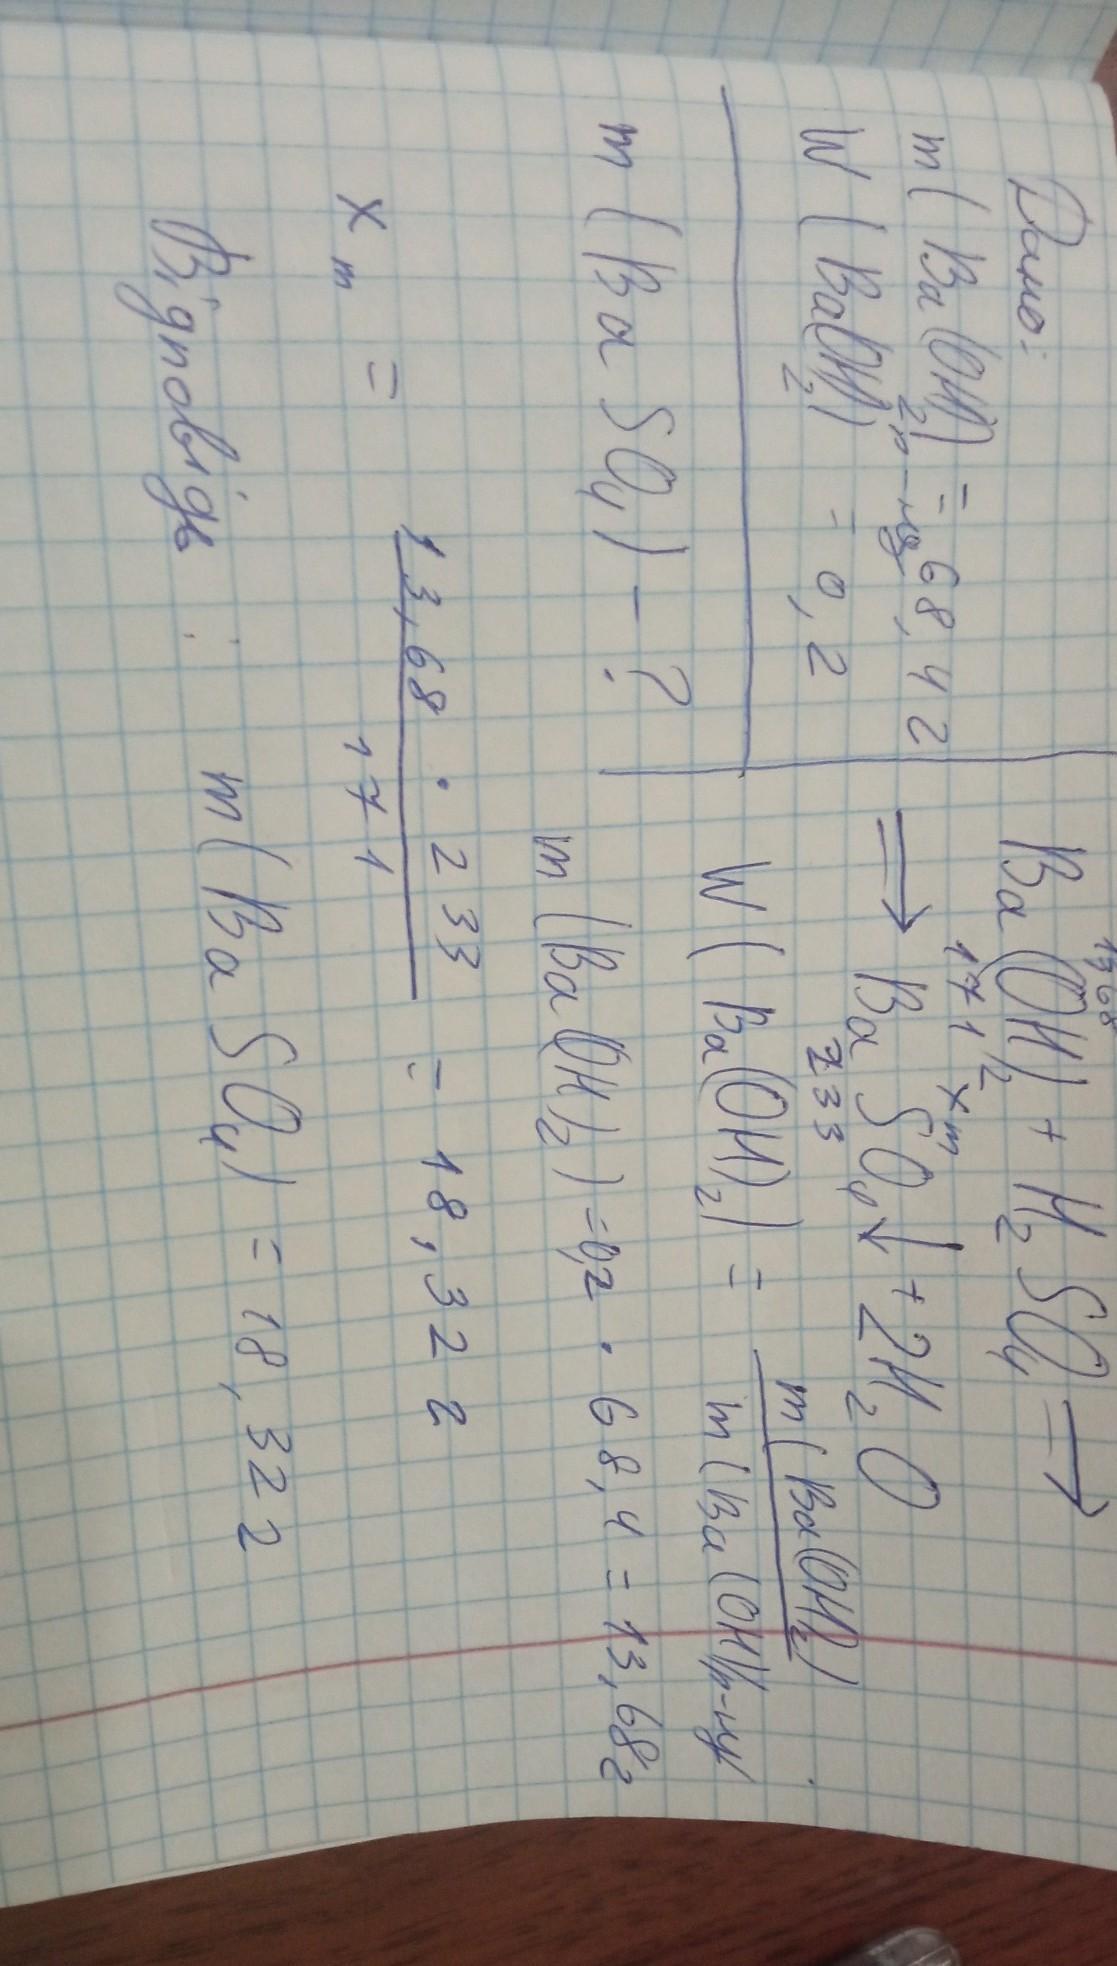 Дано:
m(Ba(OH)₂)р-ну = 68,4 г
W(Ba(OH)₂) = 0,2
m(BaSO₄) - ?
13,68 xm
Ba(OH)₂ + H₂SO₄ ⇒
171
⇒ BaSO₄↓ + 2H₂O
233
W(Ba(OH)₂) = m(Ba(OH)₂) / m(Ba(OH)₂)р-ну
m(Ba(OH)₂) = 0,2 · 68,4 = 13,68 г
xm = 13,68 · 233 / 171 = 18,32 г
Відповідь: m(BaSO₄) = 18,32 г